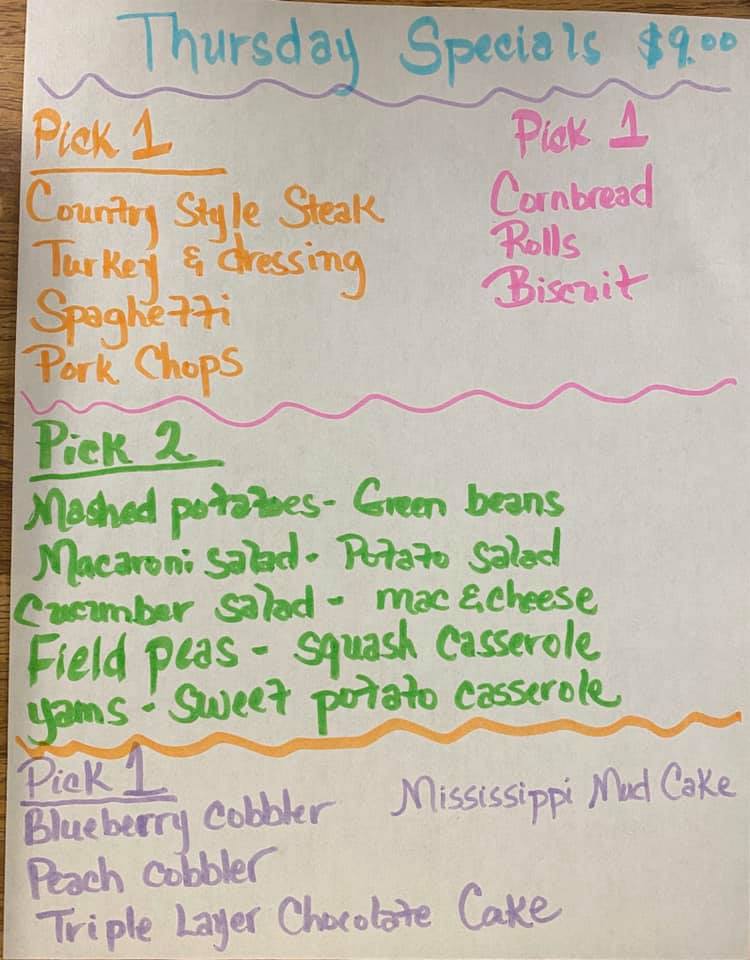 Thursday Specials $9.00
Pick 1
Country Style Steak
Turkey & dressing
Spaghetti
Pork Chops
Pick 1
Cornbread
Rolls
Biscuit
Pick 2
Mashed potatoes - Green beans
Macaroni salad - Potato salad
Cucumber salad - mac & cheese
Field peas - squash casserole
yams - sweet potato casserole
Pick 1
Blueberry cobbler
Peach cobbler
Triple Layer Chocolate Cake
Mississippi Mud Cake